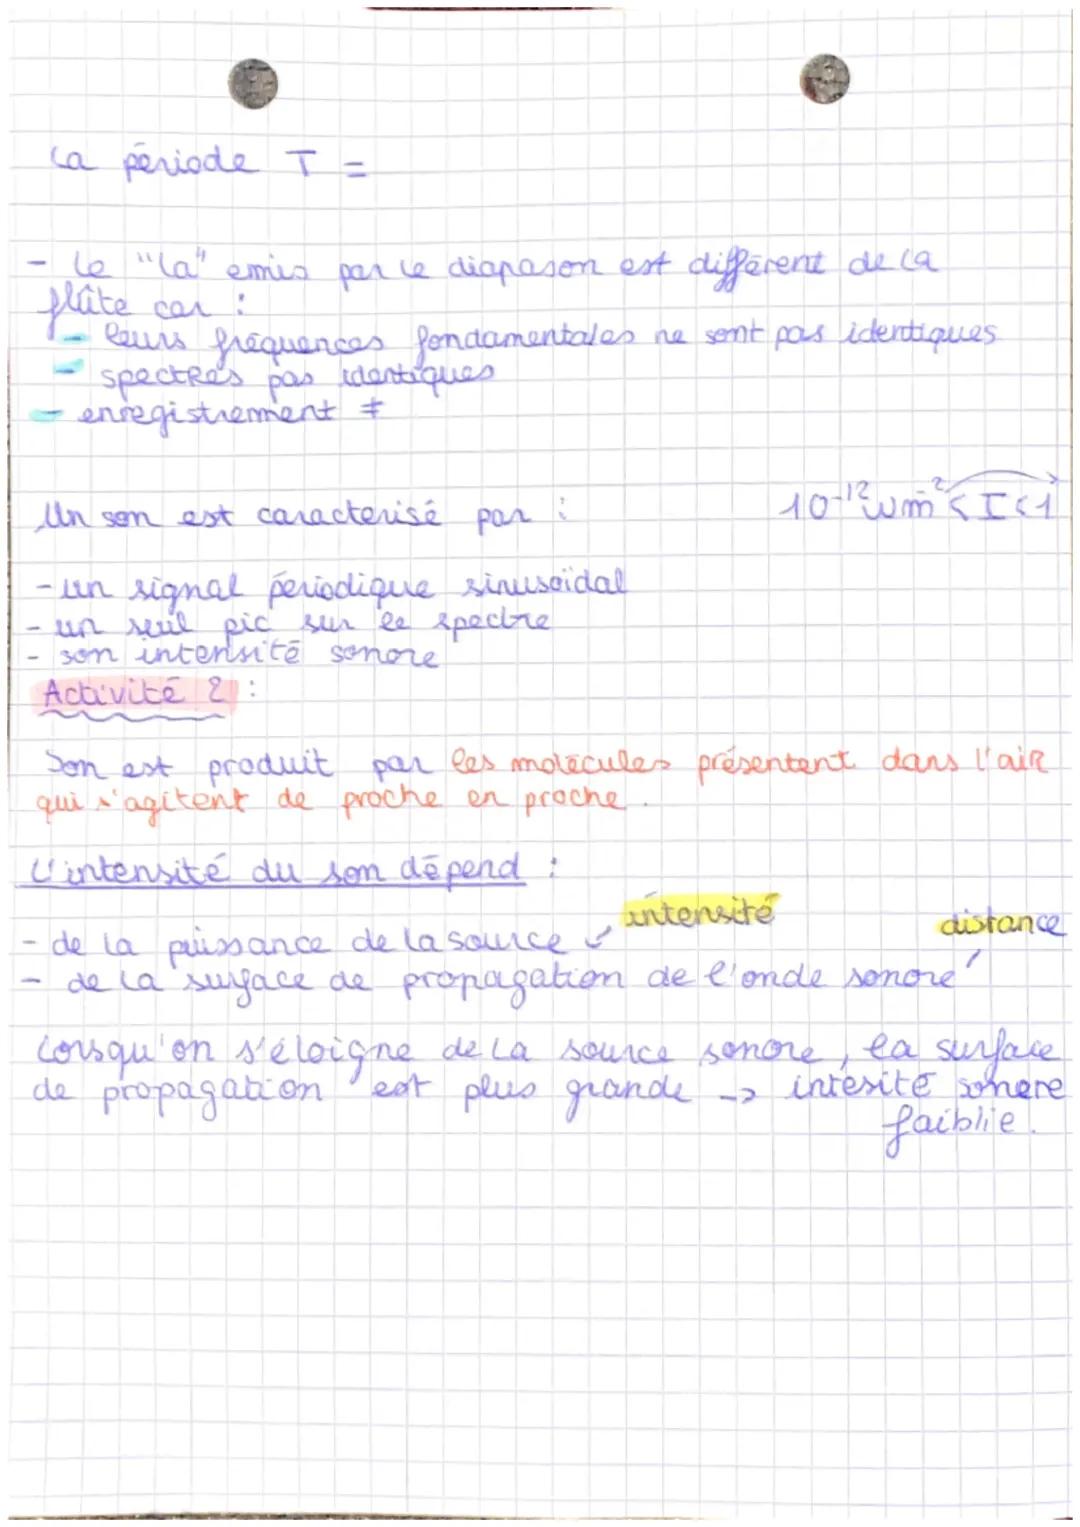 la période T =
- le "la" emis par le diapason est différent de la
flûte car :
- leurs fréquences fondamentales ne sont pas identiques
- spectres pas identiques
- enregistrement ≠
Un son est caracterisé par : 10⁻¹² W m⁻² < I < 1
- un signal périodique sinusoïdal
- un seul pic sur le spectre
- son intensité sonore
Activité 2 :
Son est produit par les molécules présentent dans l'air
qui s'agitent de proche en proche.
L'intensité du son dépend :
intensité distance
- de la puissance de la source
- de la surface de propagation de l'onde sonore
Lorsqu'on s'éloigne de la source sonore, la surface
de propagation est plus grande -> intésité sonore
faiblie.